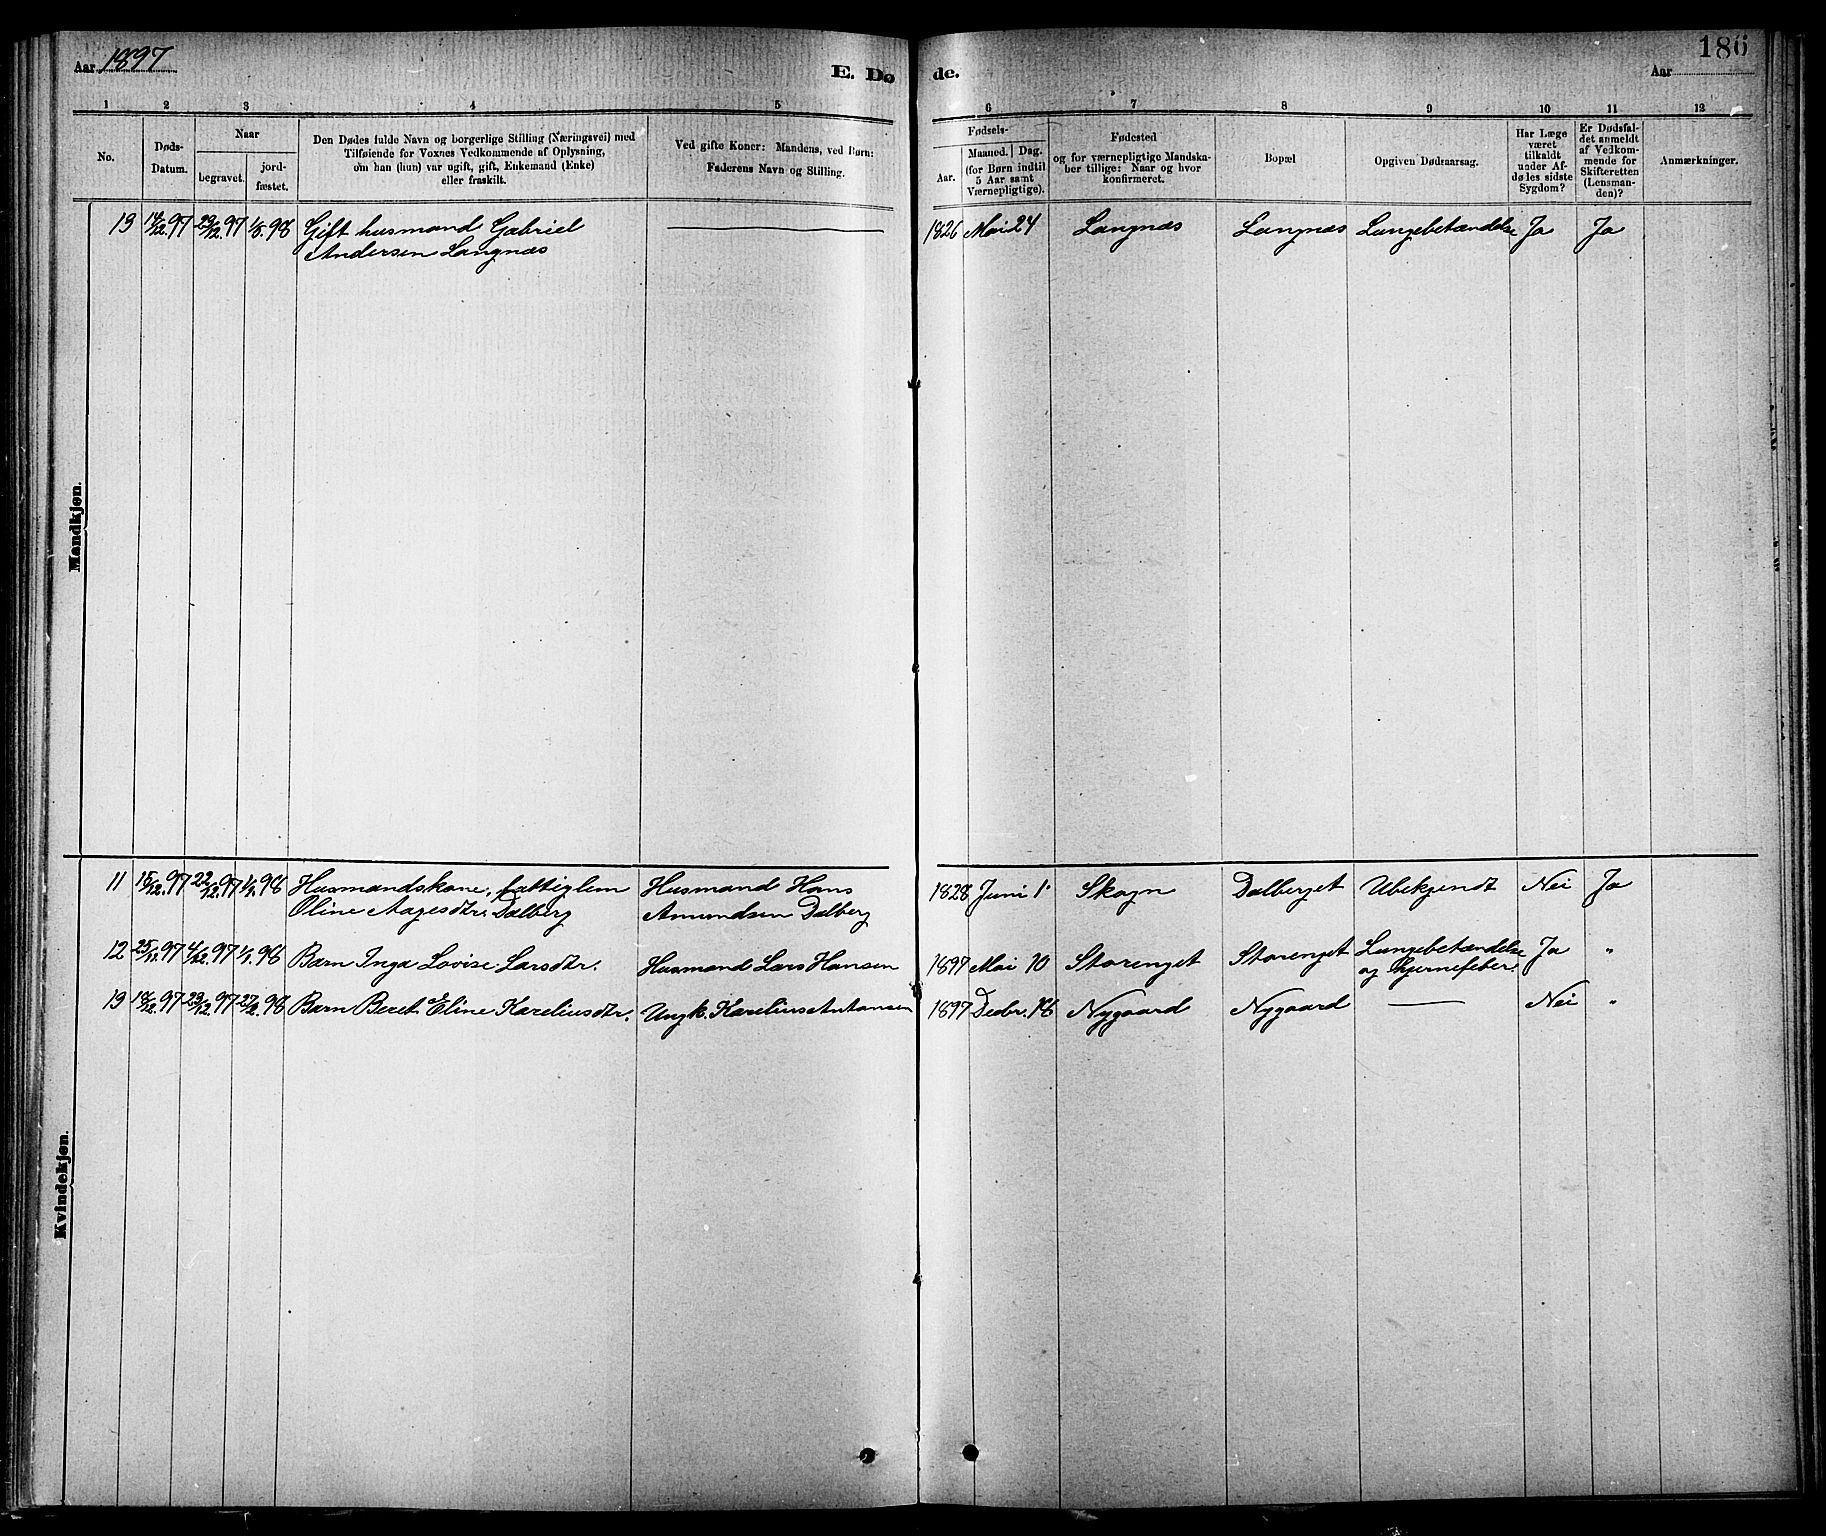 Aar 1897
E. Dø
de.
186
Aar
1 2 3 4 5 6 7 8 9 10 11 12
No.
Døds-
Datum.
Naar
begravet.
jord-
fæstet.
Den Dødes fulde Navn og borgerlige Stilling (Næringsvei) med
Tilføiende for Voxnes Vedkommende af Oplysning,
om han (hun) var ugift, gift, Enkemand (Enke)
eller fraskilt.
Ved gifte Koner: Mandens, ved Børn:
Faderens Navn og Stilling.
Fødsels-
Aar.
Maaned. Dag.
(for Børn indtil
5 Aar samt
Værnepligtige).
Fødested
og for værnepligtige Mandska-
ber tillige: Naar og hvor
konfirmeret.
Bopæl
Opgiven Dødsaarsag.
Har Læge
været
tilkaldt
under Af-
dødes sidste
Sygdom?
Er Dødsfal-
det anmeldt
af Vedkom-
mende for
Skifteretten
(Lensman-
den)?
Anmærkninger.
Mandkjøn.
13 14/12.97 23/12.97 1/5.98 Gift husmand Gabriel 1826 Mai 24 Langnæs Langnæs Lungebetændelse Ja Ja
Andersen Langnæs
Kvindekjøn.
11 15/12.97 22/12.97 1/1.98 Husmandskone, fattiglem Husmand Hans 1828 Juni 1 Skogn Dalberget Ubekjendt Nei Ja
Oline Aagesdtr. Dalberg Amundsen Dalberg
12 25/11.97 4/12.97 1/1.98 Barn Inga Lovise Larsdtr. Husmand Lars Hansen 1897 Mai 10 Storenget Storenget Lungebetændelse Ja "
og hjernefeber.
13 18/12.97 23/12.97 27/2.98 Barn Beret Eline Kareliusdtr. Ungk. Karelius Antonsen 1897 Decbr. 18 Nygaard Nygaard — Nei "